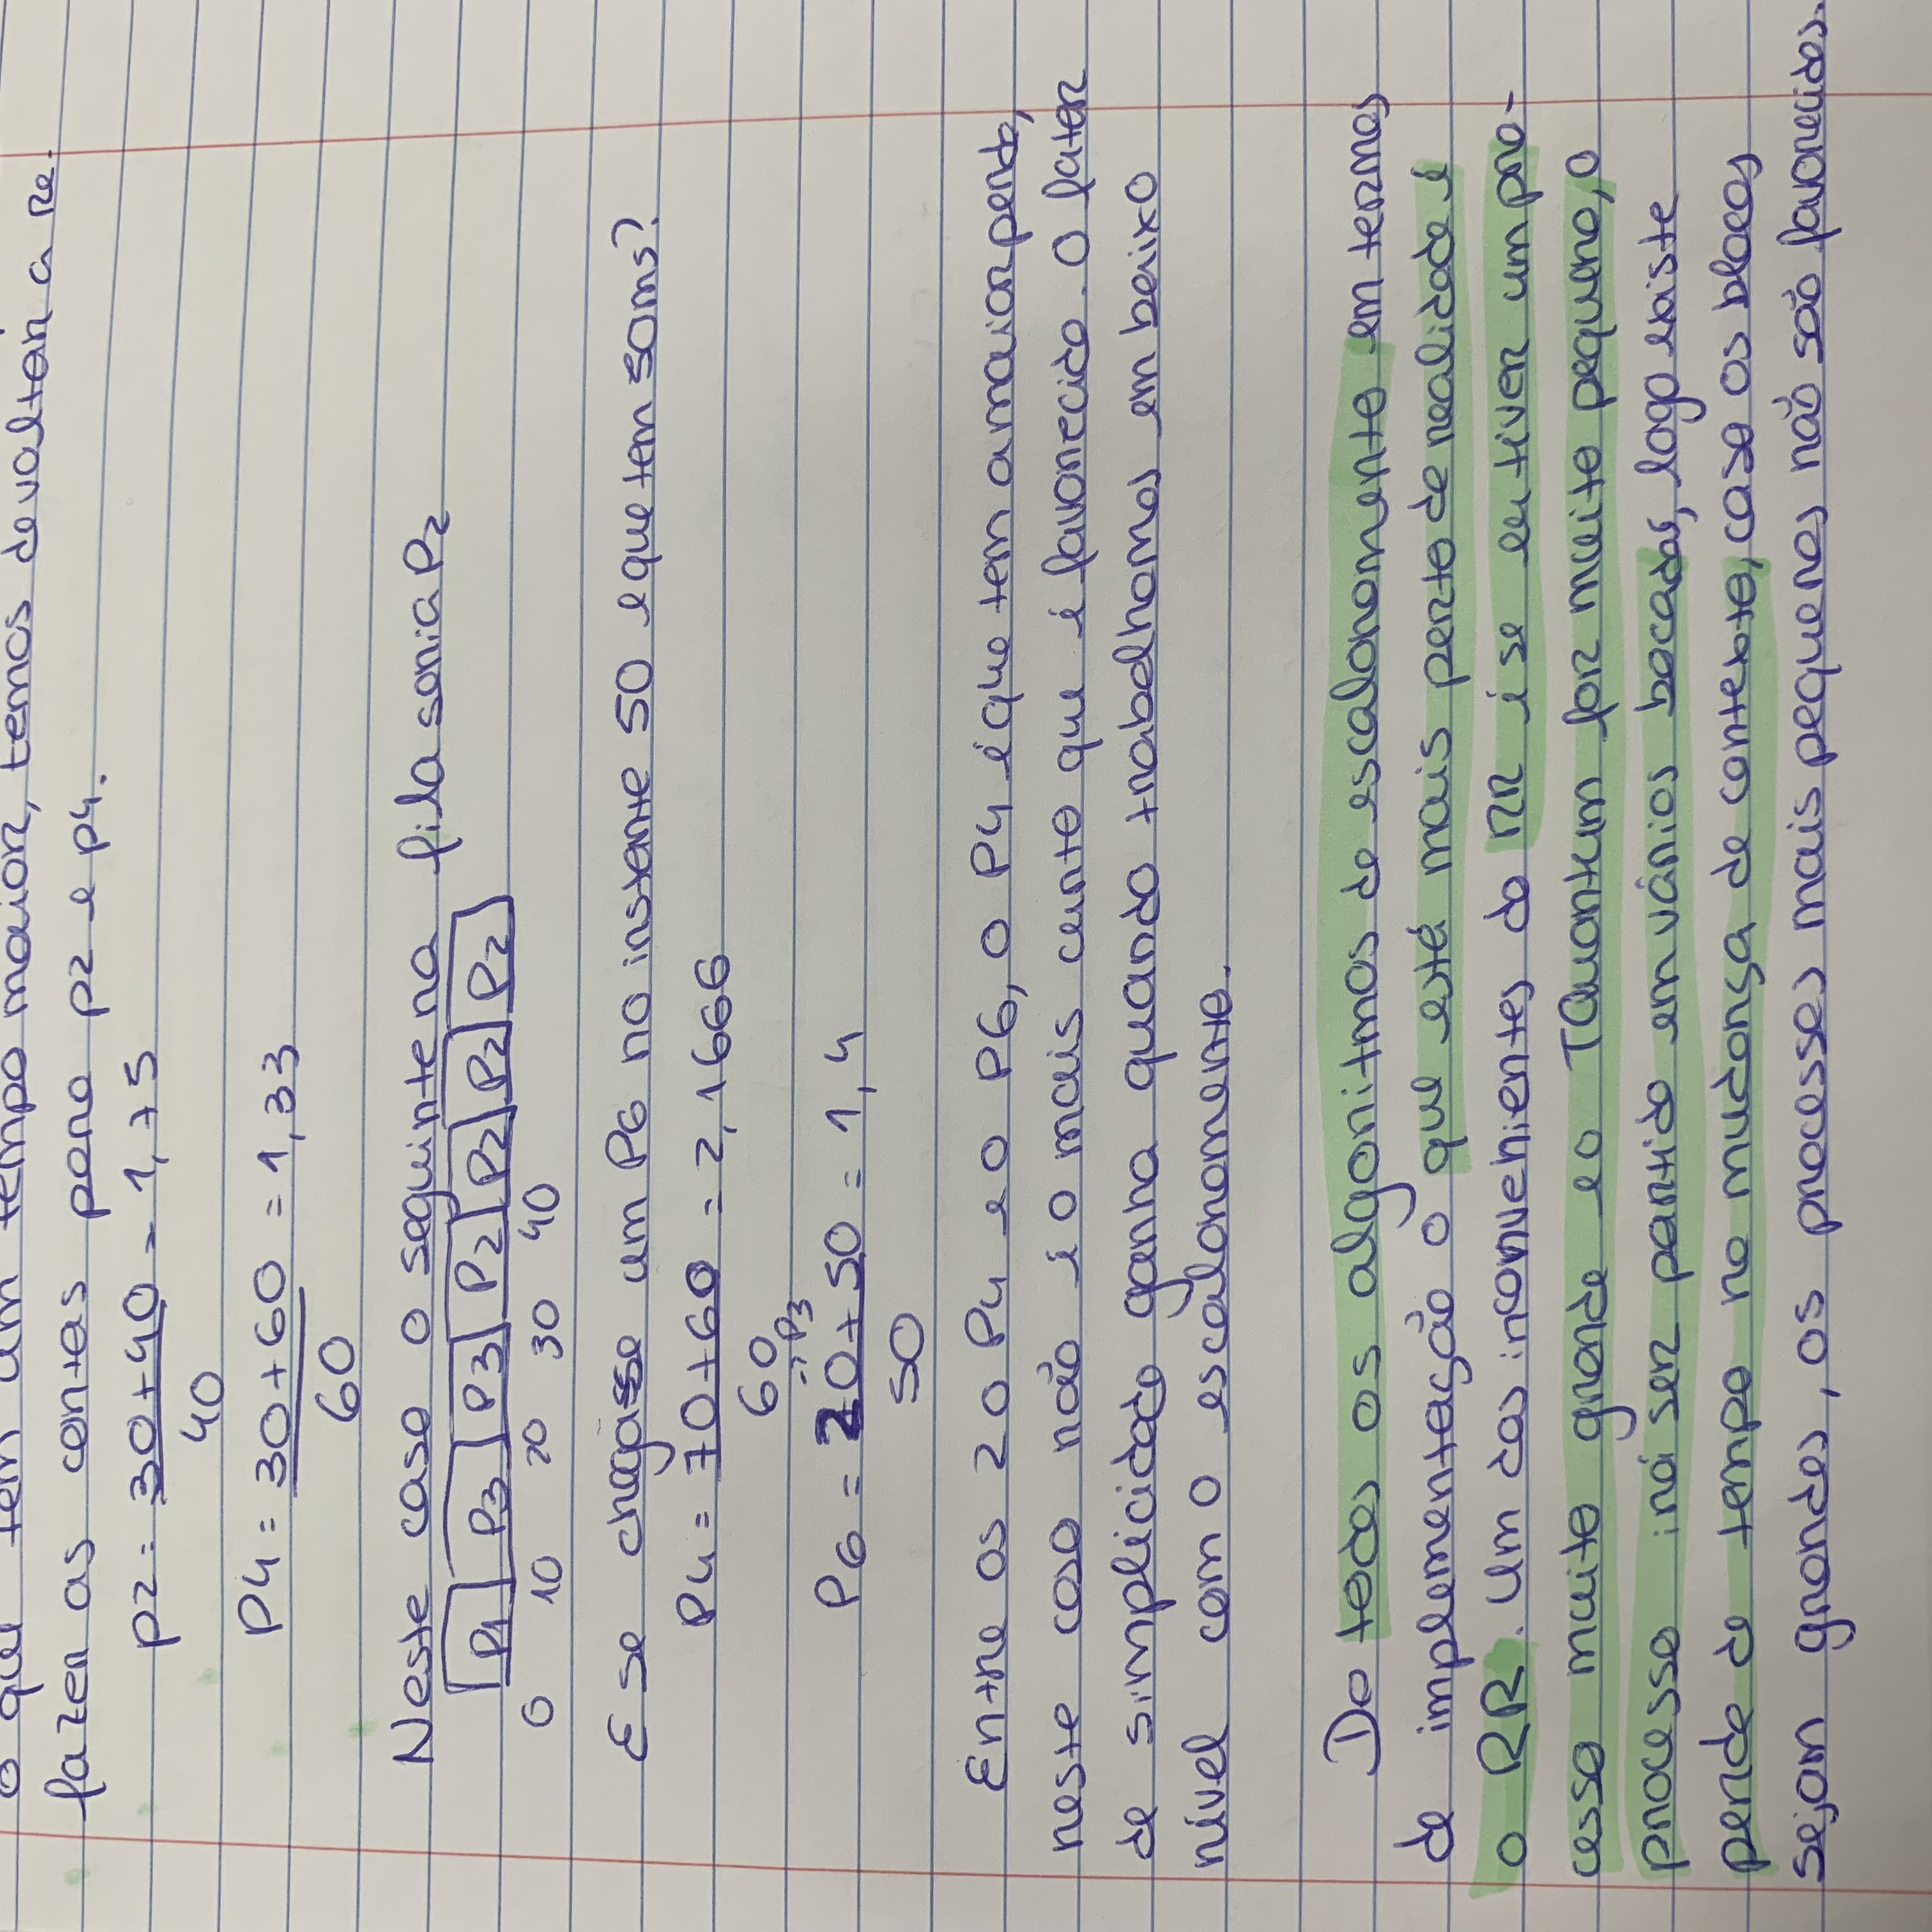 o que tem um tempo maior, temos de voltar a re-
fazer as contas para p2 e p4.
p2 = 30+40 = 1,75
40
P4 = 30+60 = 1,33
60
Neste caso o seguinte na fila seria P2
P1 P3 P3 P2 P2 P2 P2
0 10 20 30 40
E se chegasse um P6 no instante 50 e que tem 50ms?
P4 = 70+60 = 2,1666
60
→ P3
P6 = 20+50 = 1,4
50
Entre os 2 o P4 e o P6, o P4 é que tem a maior perda,
neste caso não é o mais curto que é favorecido. O fator
de simplicidade ganha quando trabalhamos em baixo
nível com o escalonamento.
De todos os algoritmos de escalonamento em termos
de implementação o que está mais perto de realidade é
o RR. Um dos inconvenientes do RR é se eu tiver um pro-
cesso muito grande e o TQuantum for muito pequeno, o
processo irá ser partido em vários bocados, logo existe
perda de tempo na mudança de contexto, caso os blocos
sejam grandes, os processos mais pequenos não são favorecidos.